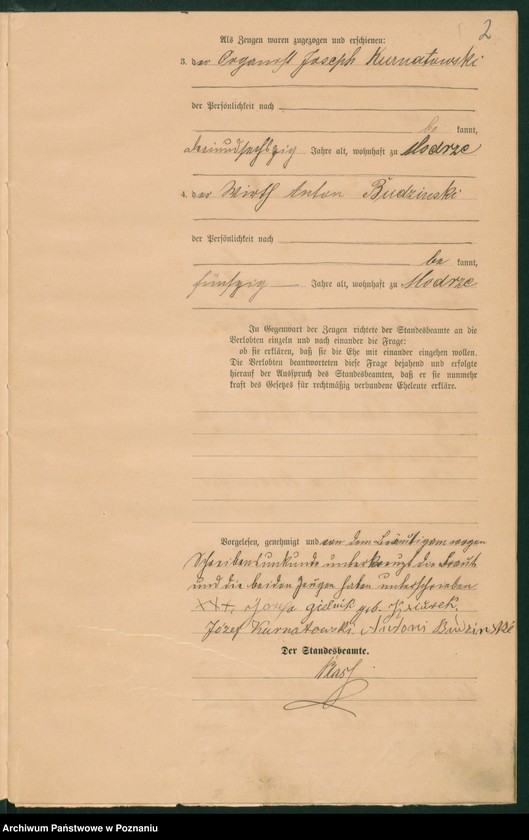 2
Als Zeugen waren zugezogen und erschienen:
3. der Organist Joseph Kurnatowski
der Persönlichkeit nach
be kannt,
dreiundsechszig Jahre alt, wohnhaft zu Modrze
4. der Wirth Anton Budzinski
der Persönlichkeit nach
be kannt,
fünfzig Jahre alt, wohnhaft zu Modrze
In Gegenwart der Zeugen richtete der Standesbeamte an die
Verlobten einzeln und nach einander die Frage:
ob sie erklären, daß sie die Ehe mit einander eingehen wollen.
Die Verlobten beantworteten diese Frage bejahend und erfolgte
hierauf der Ausspruch des Standesbeamten, daß er sie nunmehr
kraft des Gesetzes für rechtmäßig verbundene Eheleute erkläre.
Vorgelesen, genehmigt und von dem Bräutigam wegen
Schreibensunkunde unterkreuzt die Braut
und die beiden Zeugen haben unterschrieben
+++, Józefa gielnik geb.
Józef Kurnatowski. Antoni Budzinski
Der Standesbeamte.
Archiwum Państwowe w Poznaniu